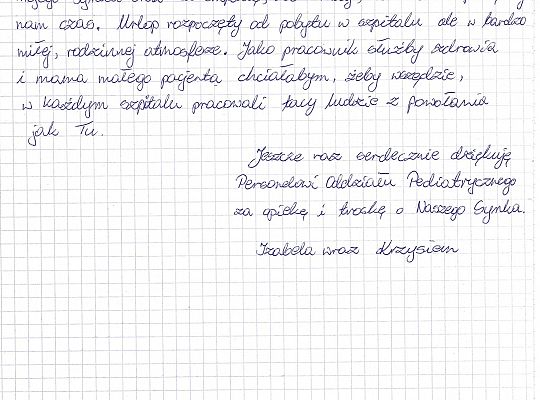 nam czas. Urlop rozpoczęty od pobytu w szpitalu ale w bardzo
miłej, rodzinnej atmosferze. Jako pracownik służby zdrowia
i mama małego pacjenta chciałabym, żeby wszędzie,
w każdym szpitalu pracowali tacy ludzie z powołania
jak Tu.
Jeszcze raz serdecznie dziękuję
Personelowi Oddziału Pediatrycznego
za opiekę i troskę o Naszego Synka.
Izabela wraz Krzysiem